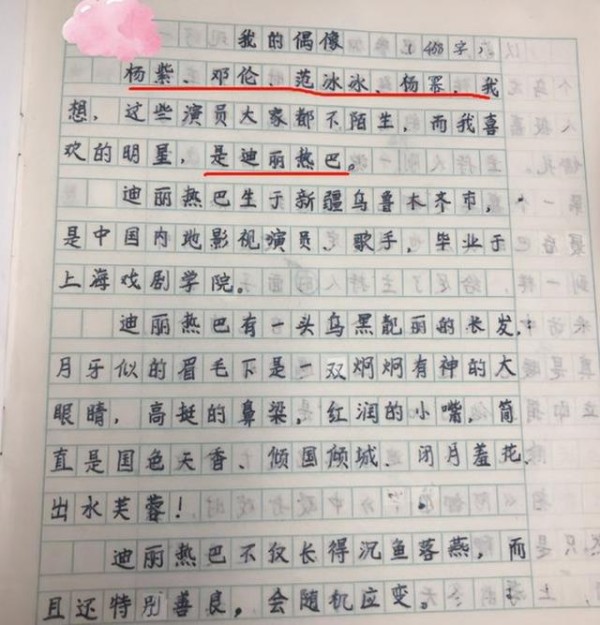 我的偶像
杨紫、邓伦、范冰冰、杨幂，我
想，这些演员大家都不陌生，而我喜
欢的明星，是迪丽热巴。
迪丽热巴生于新疆乌鲁木齐市，
是中国内地影视演员、歌手，毕业于
上海戏剧学院。
迪丽热巴有一头乌黑靓丽的长发，
月牙似的眉毛下是一双炯炯有神的大
眼睛，高挺的鼻梁，红润的小嘴，简
直是国色天香、倾国倾城、闭月羞花、
出水芙蓉！
迪丽热巴不仅长得沉鱼落燕，而
且还特别善良，会随机应变。